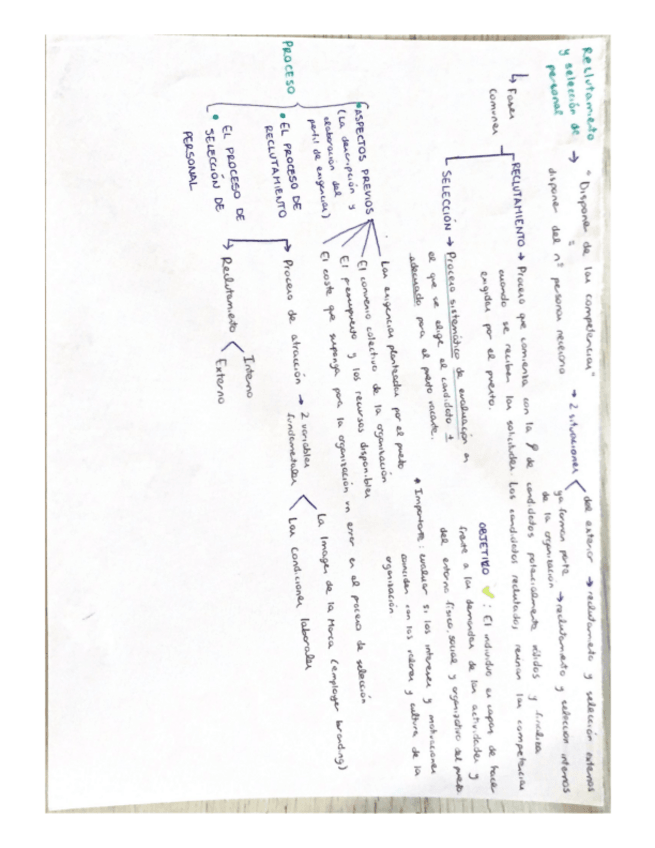 Reclutamiento
y selección de
personal
→ "Disponer de las competencias"
disponer del nº personas necesario → 2 situaciones
del exterior → reclutamiento y selección externos
ya forman parte
de la organización → reclutamiento y selección internos
↳ Fases
comunes
RECLUTAMIENTO → Proceso que comienza con la de candidatos potencialmente válidos y
cuando se reciben las solicitudes. Los candidatos reclutados, reunan las competencias
exigidas por el puesto.
SELECCIÓN → Proceso sistemático de evaluación en
el que se elige el candidato +
adecuado para el puesto vacante.
OBJETIVO : El individuo es capaz de hacer
frente a las demandas de las actividades y
del entorno físico, social y organizativo del puesto
* Importante: evaluar si los intereses y motivaciones
coinciden con los valores y cultura de la
organización
PROCESO
• ASPECTOS PREVIOS
(La descripción y
elaboración del
perfil de exigencias)
Las exigencias planteadas por el puesto
El convenio colectivo de la organización
El presupuesto y los recursos disponibles
El coste que supenga para la organización un error en el proceso de selección
• EL PROCESO DE
RECLUTAMIENTO
→ Proceso de atracción → 2 variables
fundamentales
La Imagen de la Marca (employer branding)
Las condiciones laborales
→ Reclutamiento
Interno
Externo
• EL PROCESO DE
SELECCIÓN DE
PERSONAL